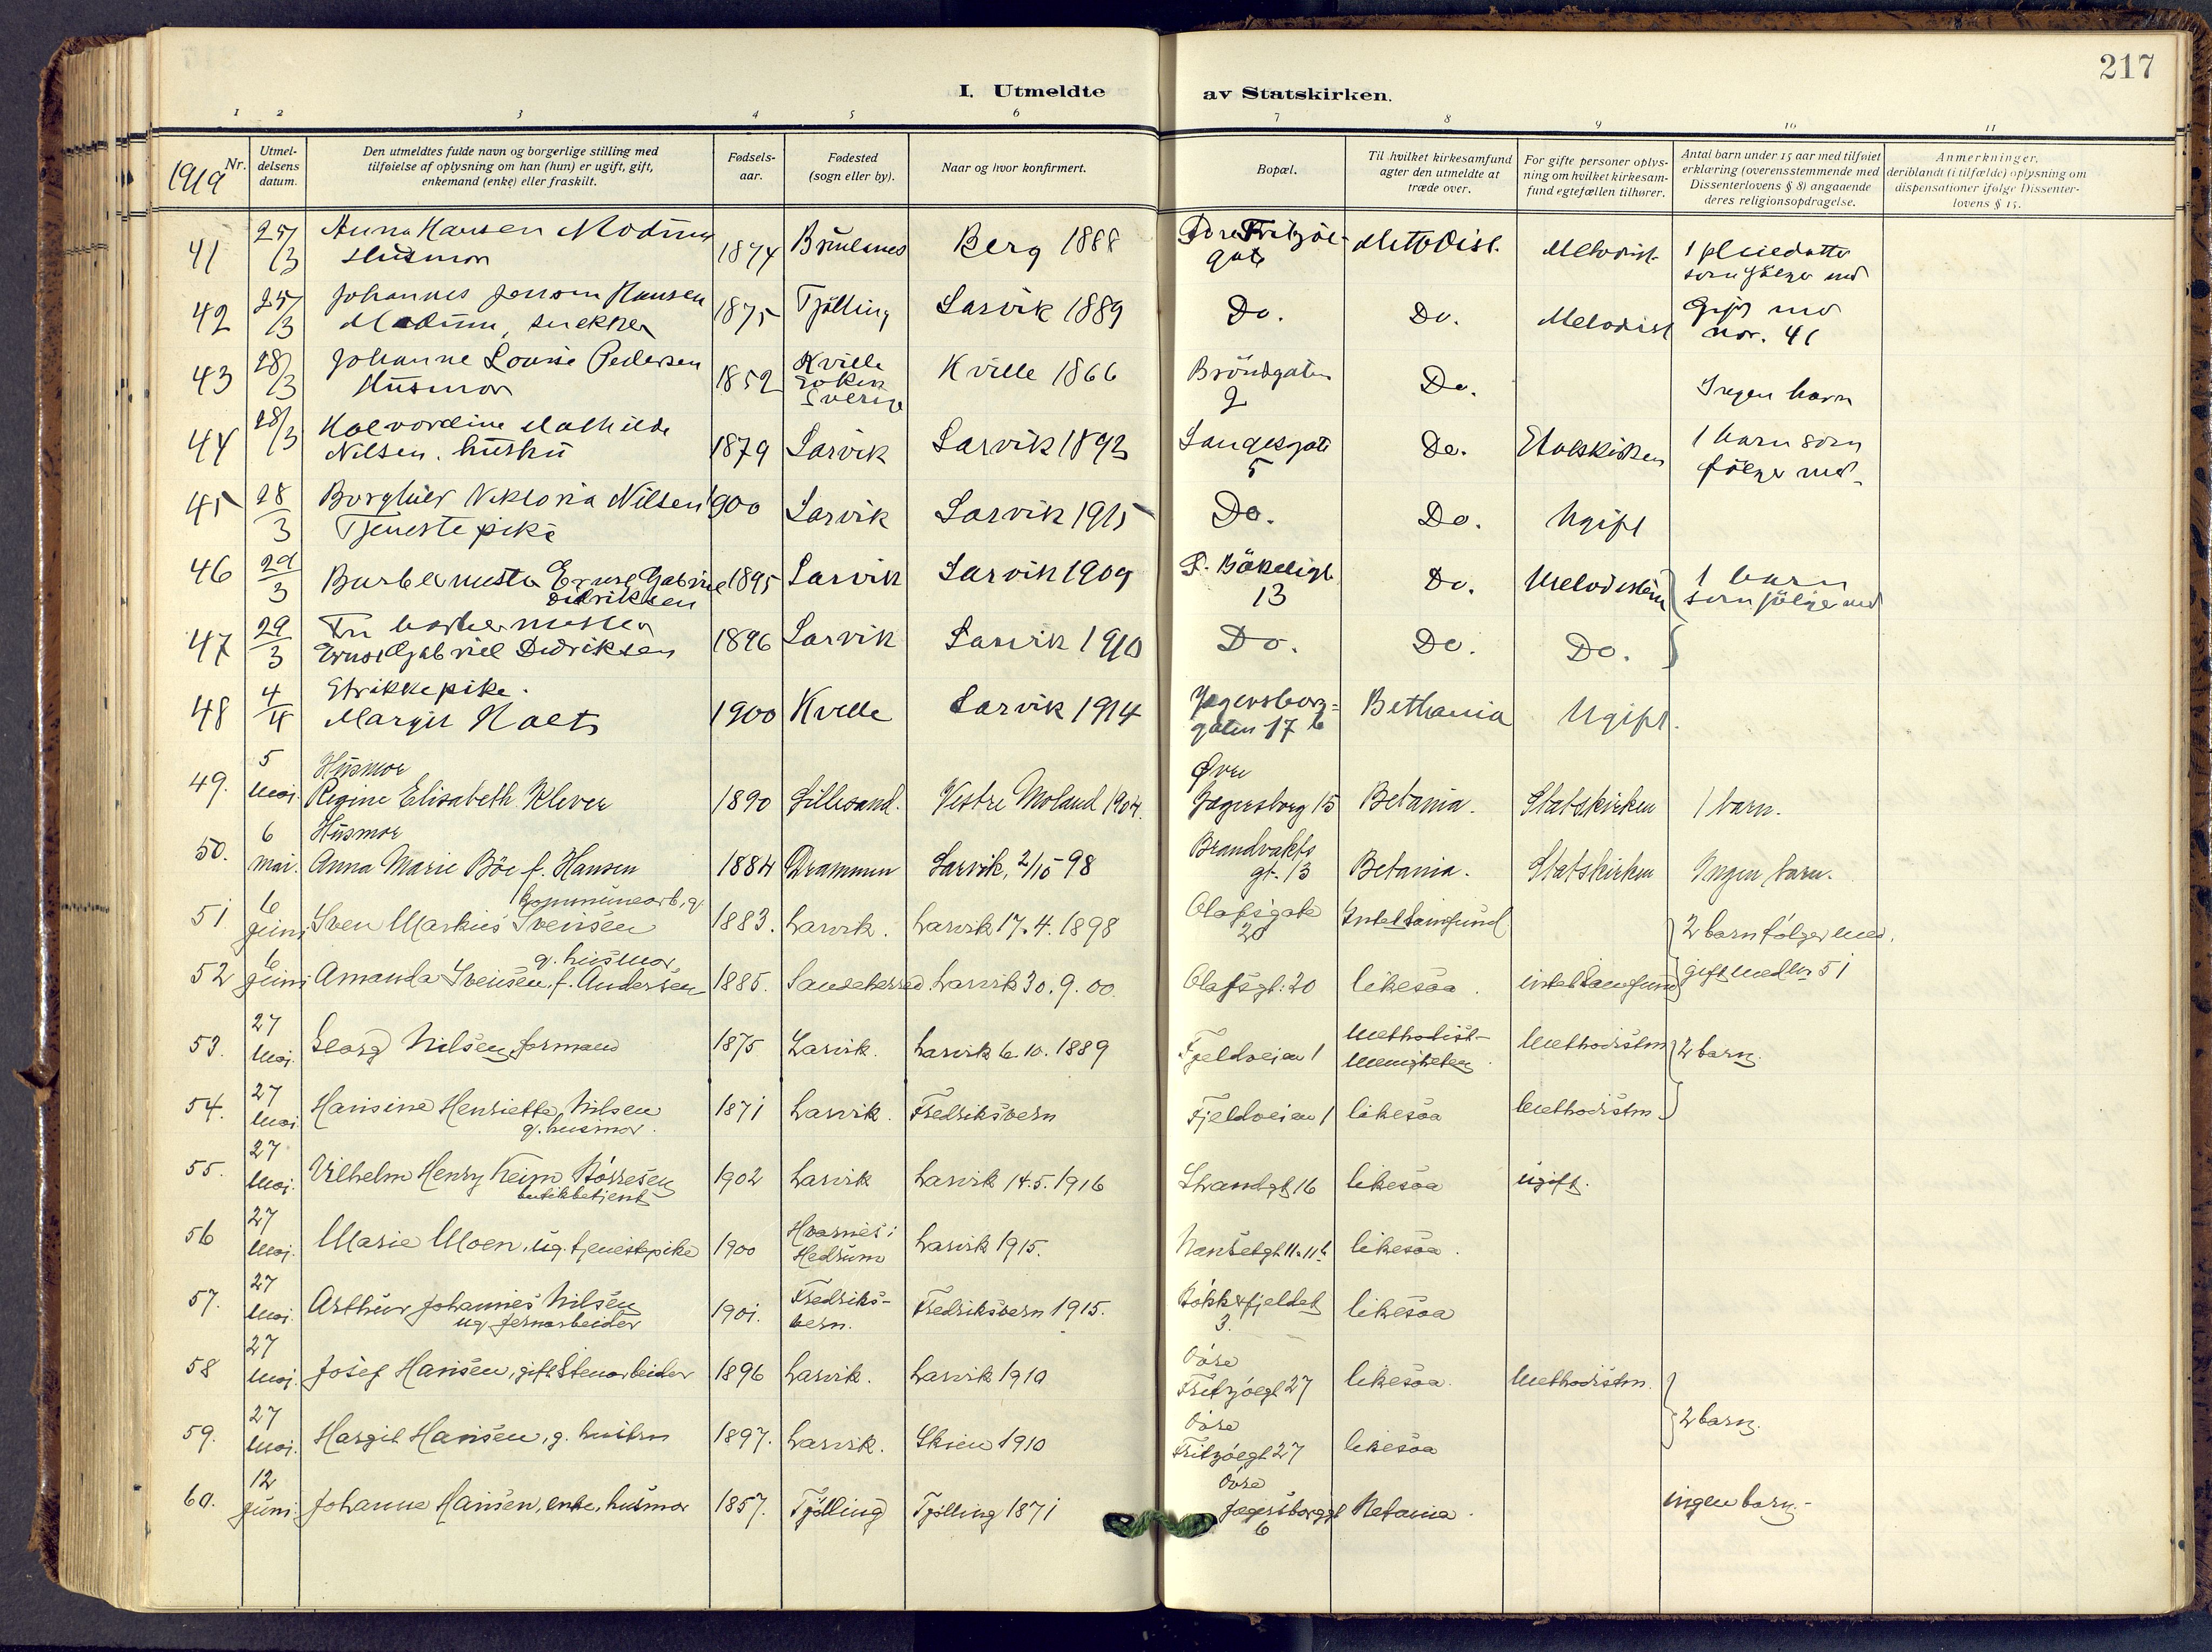 217
I. Utmeldte av Statskirken.
1 2 3 4 5 6 7 8 9 10 11
1919 Nr.
Utmeldelsens datum.
Den utmeldtes fulde navn og borgerlige stilling med tilføielse af oplysning om han (hun) er ugift, gift, enkemand (enke) eller fraskilt.
Fødselsaar.
Fødested (sogn eller by).
Naar og hvor konfirmert.
Bopæl.
Til hvilket kirkesamfund agter den utmeldte at træde over.
For gifte personer oplysning om hvilket kirkesamfund egtefællen tilhører.
Antal barn under 15 aar med tilføiet erklæring (overensstemmende med Dissenterlovens § 8) angaaende deres religionsopdragelse.
Anmerkninger, deriblandt (i tilfælde) oplysning om dispensationer ifølge Dissenterlovens § 15.
41 25/3 Anna Hansen Modum Husmor 1874 Brunlanes Berg 1888 Fritzöegate Methodist. Methodist. 1 pleiedatter som fölger med
42 25/3 Johannes Jensen Hansen Modum, snekker 1875 Tjölling Larvik 1889 Do. Do. Methodist Gift med nor. 41
43 28/3 Johanne Louise Pedersen Husmor 1852 Kville Soken Sverige Kville 1866 Bröndgaten 2 Do. Ingen barn
44 28/3 Halvordine Mathilde Nilsen. hustru 1879 Larvik Larvik 1892 Langesgate 5 Do. Statskirken 1 barn som fölger med
45 28/3 Borghild Viktoria Nilsen Tjenestepike 1900 Larvik Larvik 1915 Do. Do. Ugift
46 29/3 Barbermester Ernst Gabriel Didriksen 1895 Larvik Larvik 1909 Bökeligt 13 Do. Methodisten 1 barn som fölger med
47 29/3 Fru barbermester Ernst Gabriel Didriksen 1896 Larvik Larvik 1910 Do. Do. Do.
48 4/4 Strikkepike. Margit 1900 Kvelle Larvik 1914 Jegersborggaten 17 b Bethania Ugift.
49. 5 mai. Husmor Regine Elisabeth Klever 1890 Lillesand. Vestre Moland 1904. Øvre Jegersborg 15 Betania. Statskirken 1 barn.
50. 6 mai. Husmor Anna Marie Böe f. Hansen 1884 Drammen Larvik, 2/10-98 Brandvakts gt. 13 Betania. Statskirken Ingen barn.
51 6 juni Sven Markus Svensen kommunearb, g. 1883. Larvik. Larvik 17.4.1898 Olafsgate 20 Intet samfund 2 barn fölger med.
52 6 juni Amanda Svensen, f. Andersen g. husmor 1885. Sandeherred Larvik 30.9.00. Olafsgt. 20 likesaa. intet samfund gift med nr 51
53. 27 Mai. Georg Nilsen, formand 1875 Larvik. Larvik 6.10.1889 Fjeldveien 1 Methodistmenigheten. Methodistm. 2 barn.
54. 27 Mai Hansine Henriette Nilsen g. husmor. 1871 Larvik. Fredriksvern Fjeldveien 1 likesaa Methodistm.
55. 27 Mai. Vilhelm Henry Keim Börresen butikbetjent 1902 Larvik Larvik 14.5.1916 Strandgt 16 likesaa ugift.
56 27 Mai. Marie Moen, ug. tjenestepike 1900 Hvarnes i Hedrum Larvik 1915. Nansetgt likesaa.
57. 27 Mai. Arthur Johannes Nilsen ug. jernarbeider 1901. Fredriksvern. Fredriksvern 1915. Bökkerfjeldet 3. likesaa
58 27 Mai. Josef Hansen, gift Stenarbeider 1896 Larvik. Larvik 1910 Övre Fritzöegt 27 likesaa. Methodistm.
59. 27 Mai. Margit Hansen, g. hustru 1897. Larvik. Skien 1910 Övre Fritzöegt 27 likesaa 2 barn.
60. 12 juni. Johanne Hansen, enke, husmor 1857. Tjölling Tjölling 1871 Övre Jegersborggt 6 Betania. ingen barn.-